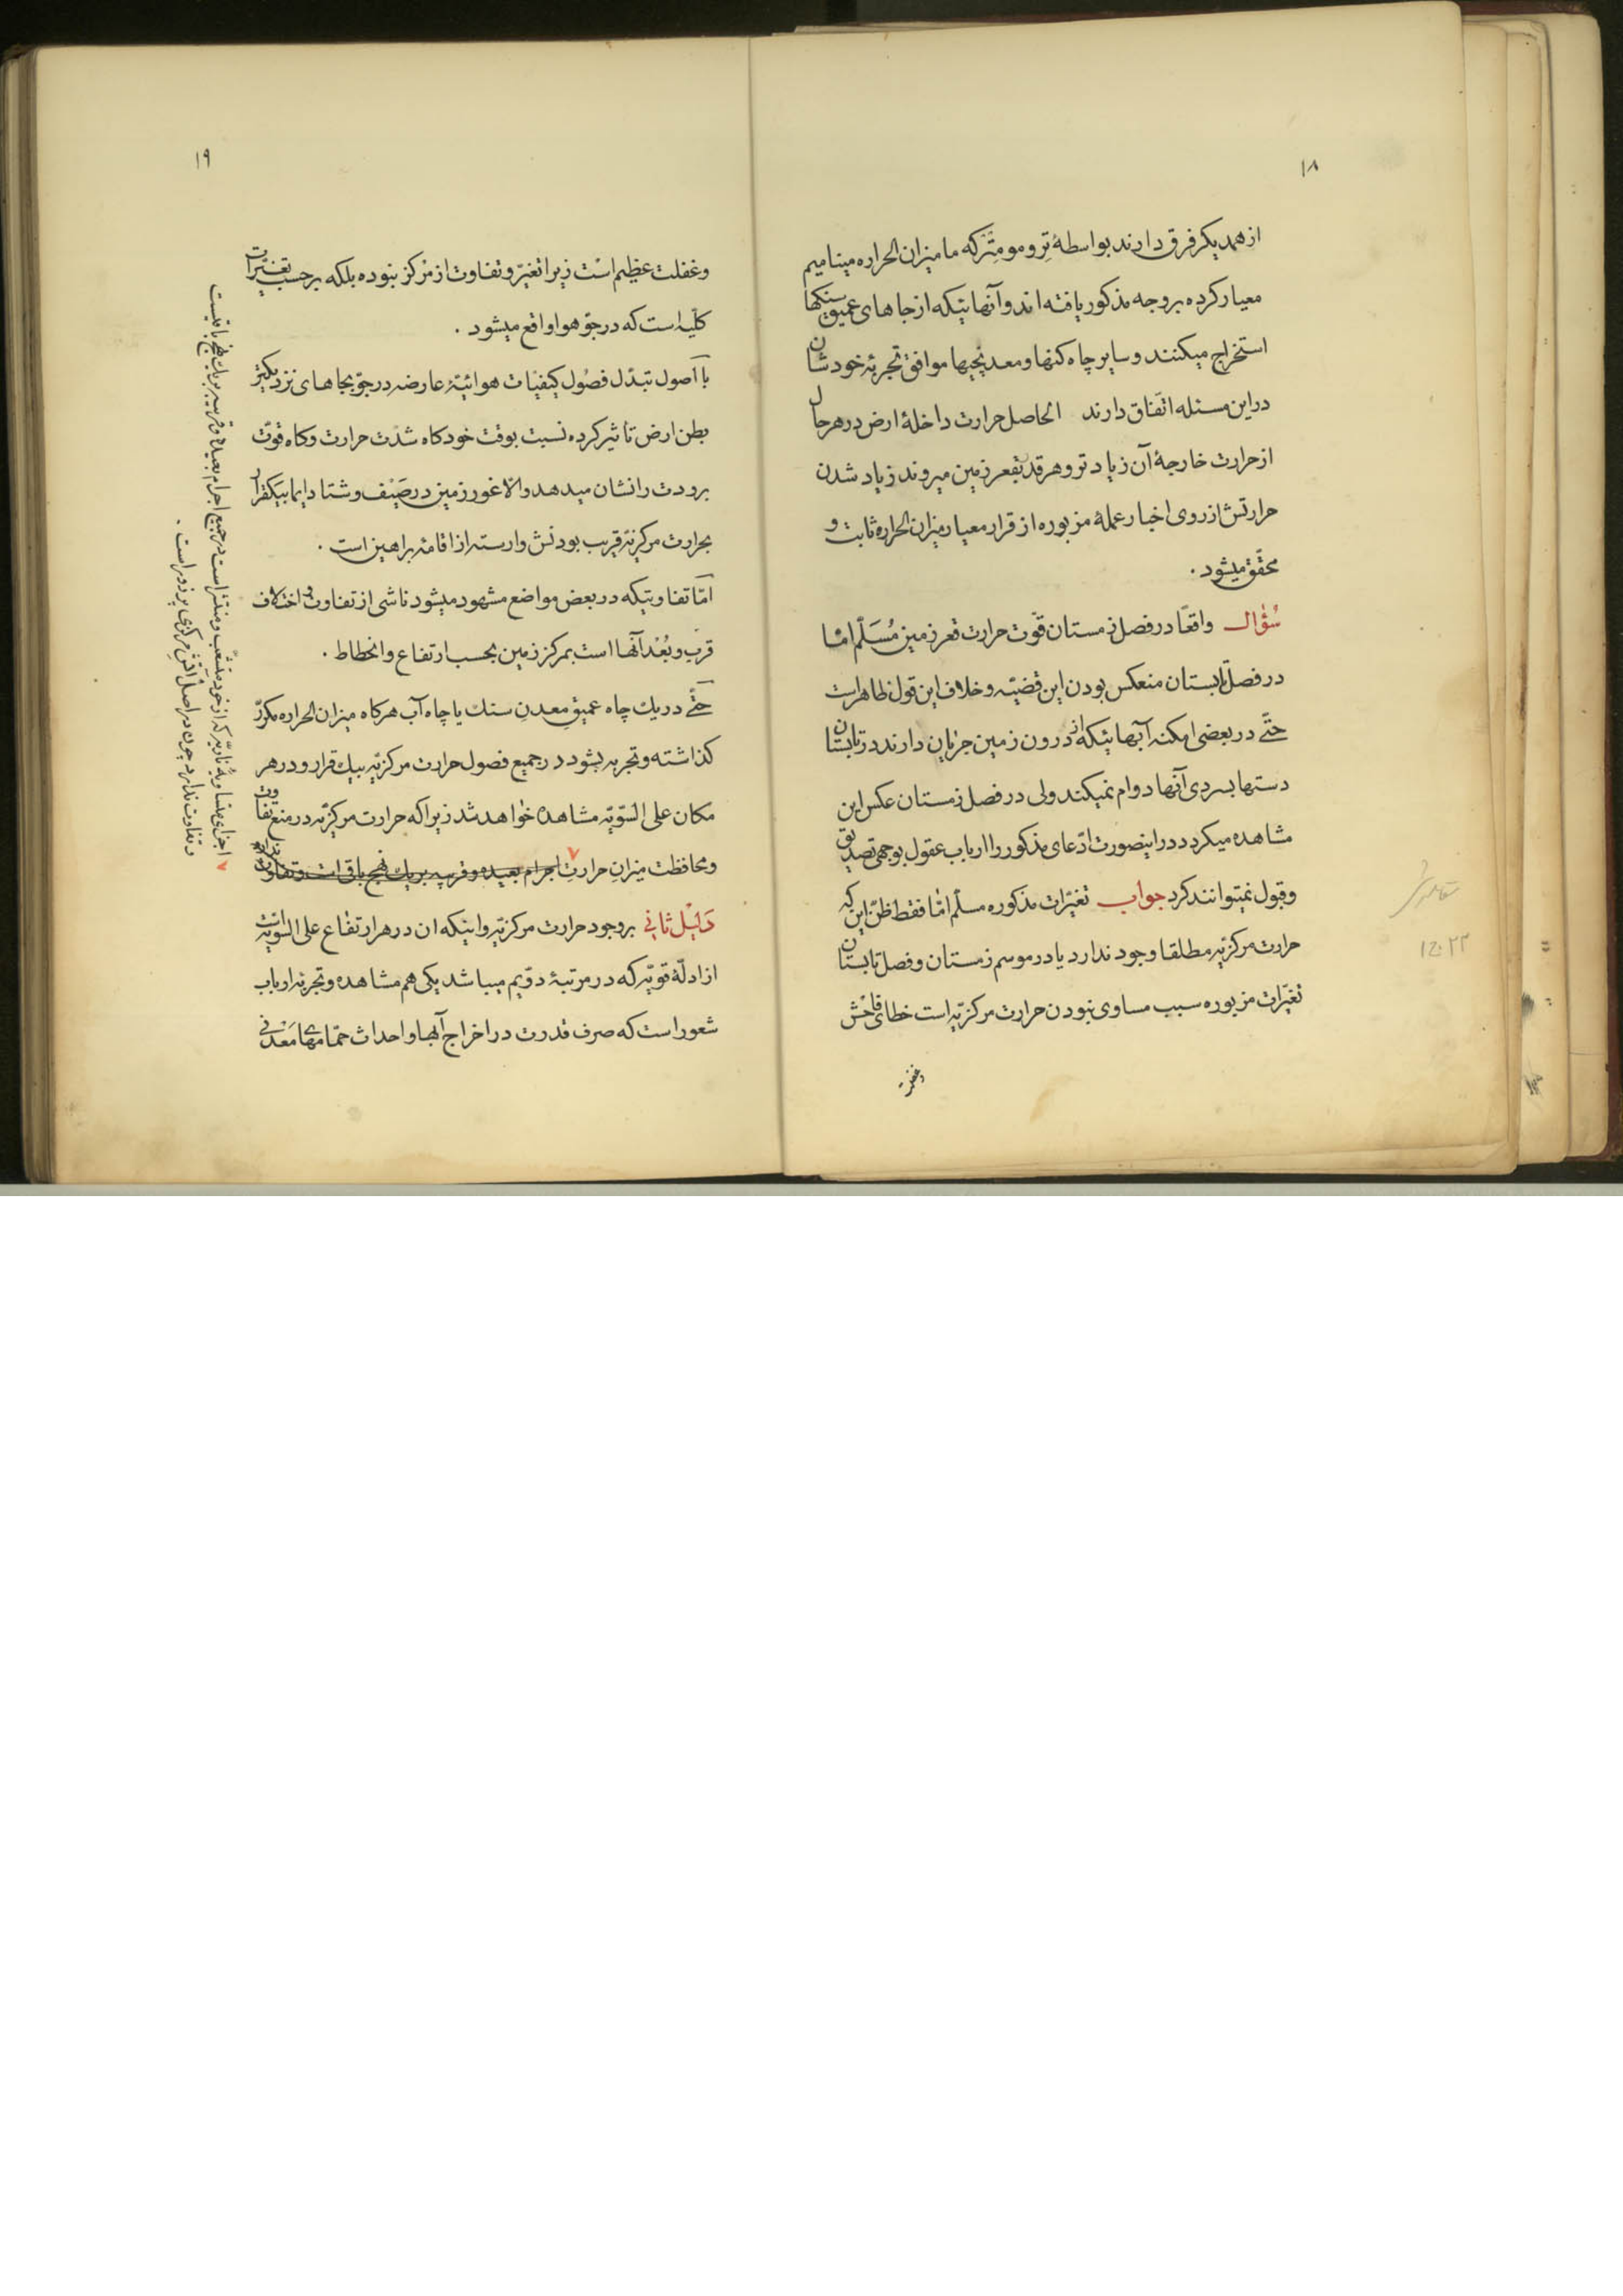 ۱۸
از همدیکر فرق دارند بواسطهٔ تِرومومِتْر که ما میزان الحراره مینامیم
معیار کرده بروجه مذکور یافته‌اند و آنهائیکه از جاهای عمیق سنکها
استخراج میکنند و سایر چاه کنها و معدنچیها موافق تجربهٔ خودشان
در این مسئله اتّفاق دارند الحاصل حرارت داخلهٔ ارض در هر حال
از حرارت خارجهٔ آن زیادتر و هر قدر بقعر زمین میروند زیاد شدن
حرارتش از روی اخبار عملهٔ مزبوره از قرار معیار میزان الحراره ثابت و
محقّق میشود .
سُؤال واقعًا در فصل زمستان قوّت حرارت قعر زمین مُسَلّم امّا
در فصل تابستان منعکس بودن این قضیّه و خلاف این قول ظاهر است
حتّی در بعضی امکنه آبهائیکه از درون زمین جریان دارند در تابستان
دستها بسردی آنها دوام نمیکند ولی در فصل زمستان عکس این
مشاهده میکردد در اینصورت ادّعای مذکور را ارباب عقول بوجهی تصدیق
و قبول نمیتوانند کرد جواب تغیّرات مذکوره مسلّم امّا فقط ظنّ این که
حرارت مرکزیّه مطلقا وجود ندارد یا در موسم زمستان و فصل تابستان
تغیّرات مزبوره سبب مساوی نبودن حرارت مرکزیّه است خطای فاحش
وغفلت
۱۹
و غفلت عظیم است زیرا تغیّر و تفاوت از مرکز نبوده بلکه برحسب تغیّرات
کلّیه است که در جوّ هوا واقع میشود .
با اصول تبدّل فصول کیفیّات هوائیّهٔ عارضه در جوّ بجاهای نزدیکتر
بطن ارض تاثیر کرده نسبت بوقت خود کاه شدّت حرارت و کاه قوّت
برودت را نشان میدهد والّا غور زمین در صَیْف و شتا دایما بیکقرار
بحرارت مرکزیّه قریب بودنش وارسته از اقامهٔ براهین است .
امّا تفاوتیکه در بعض مواضع مشهود میشود ناشی از تفاوت و اختلاف
قرب و بُعْد آنها است بمرکز زمین بحسب ارتفاع و انحطاط .
حتّی در یك چاه عمیقِ معدنِ سنك یا چاه آب هرکاه میزان الحراره مکرّر
کذاشته و تجربه بشود در جمیع فصول حرارت مرکزیّه بیك قرار و در هر
مکان علی السّویّه مشاهده خواهد شد زیرا که حرارت مرکزیّه در منع تفاوت
و محافظت میزانِ حرارتِ اجرام بعیده و قریبه بریك نهج باقی است و تفاوت
دَلیْل ثانی بر وجود حرارت مرکزیّه و اینکه ان در هر ارتفاع علی السّویّه است
از ادلّهٔ قویّه که در مرتبهٔ دوّیم میباشد یکی هم مشاهده و تجربهٔ ارباب
شعور است که صرف قدرت در اخراج آبها و احداث حمّامهای مَعْدنی
اجزای متساویهٔ ناریّه که از خود متشعّب و منتشر است در جمیع اجرام بعیده و قریبه بریك نهج باقیست
و تفاوت ندارد چون در اصل